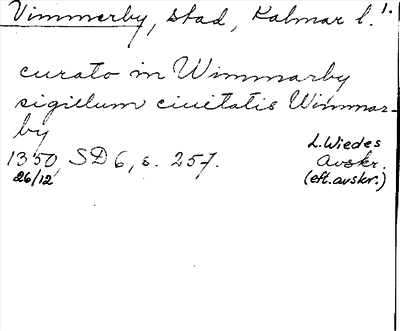 Vimmerby, stad, Kalmar l. 1.
curato in Wimmarby
sigillum ciuitatis Wimmar-
by
1350 SD 6, s. 257.
26/12
L. Wiedes
Avskr.
(efl. avskr.)